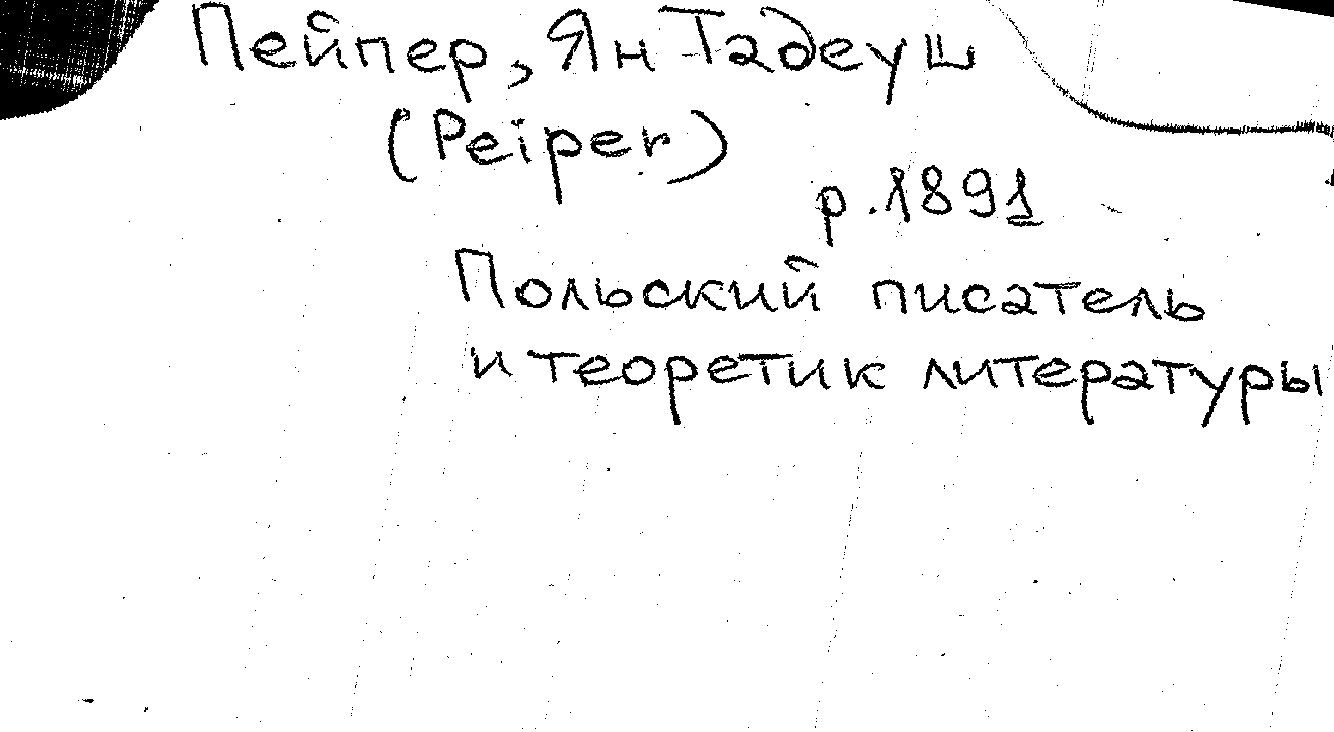 Пейпер, Ян Тадеуш
(Peiper)
р. 1891
Польский писатель
и теоретик литературы